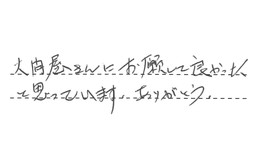 大内屋さんにお願いして良かった
と思っています。ありがとう。